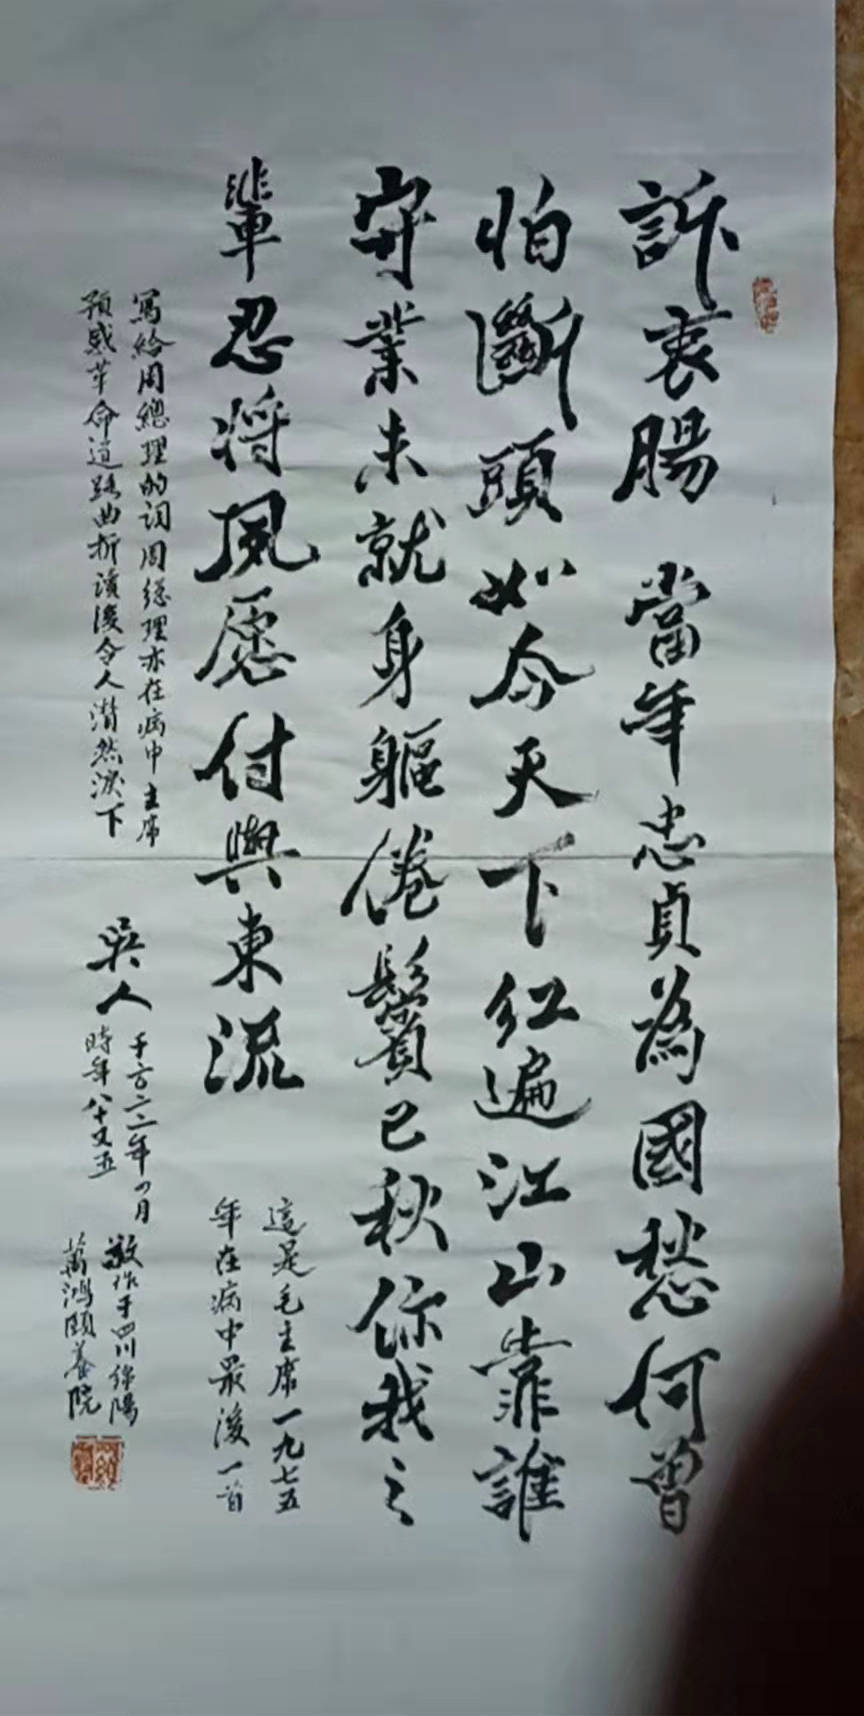 訴衷腸 當年忠貞為國愁何曾
怕斷頭如今天下紅遍江山靠誰
守業未就身軀倦鬢已秋你我之
輩忍将夙愿付與東流
這是毛主席一九七五
年在病中最後一首
寫給周總理的詞周總理亦在病中主席
預感革命道路曲折讀後令人潸然淚下
吴人
二〇二二年四月
時年八十又五
敬作于四川绵陽
萬鴻頤養院